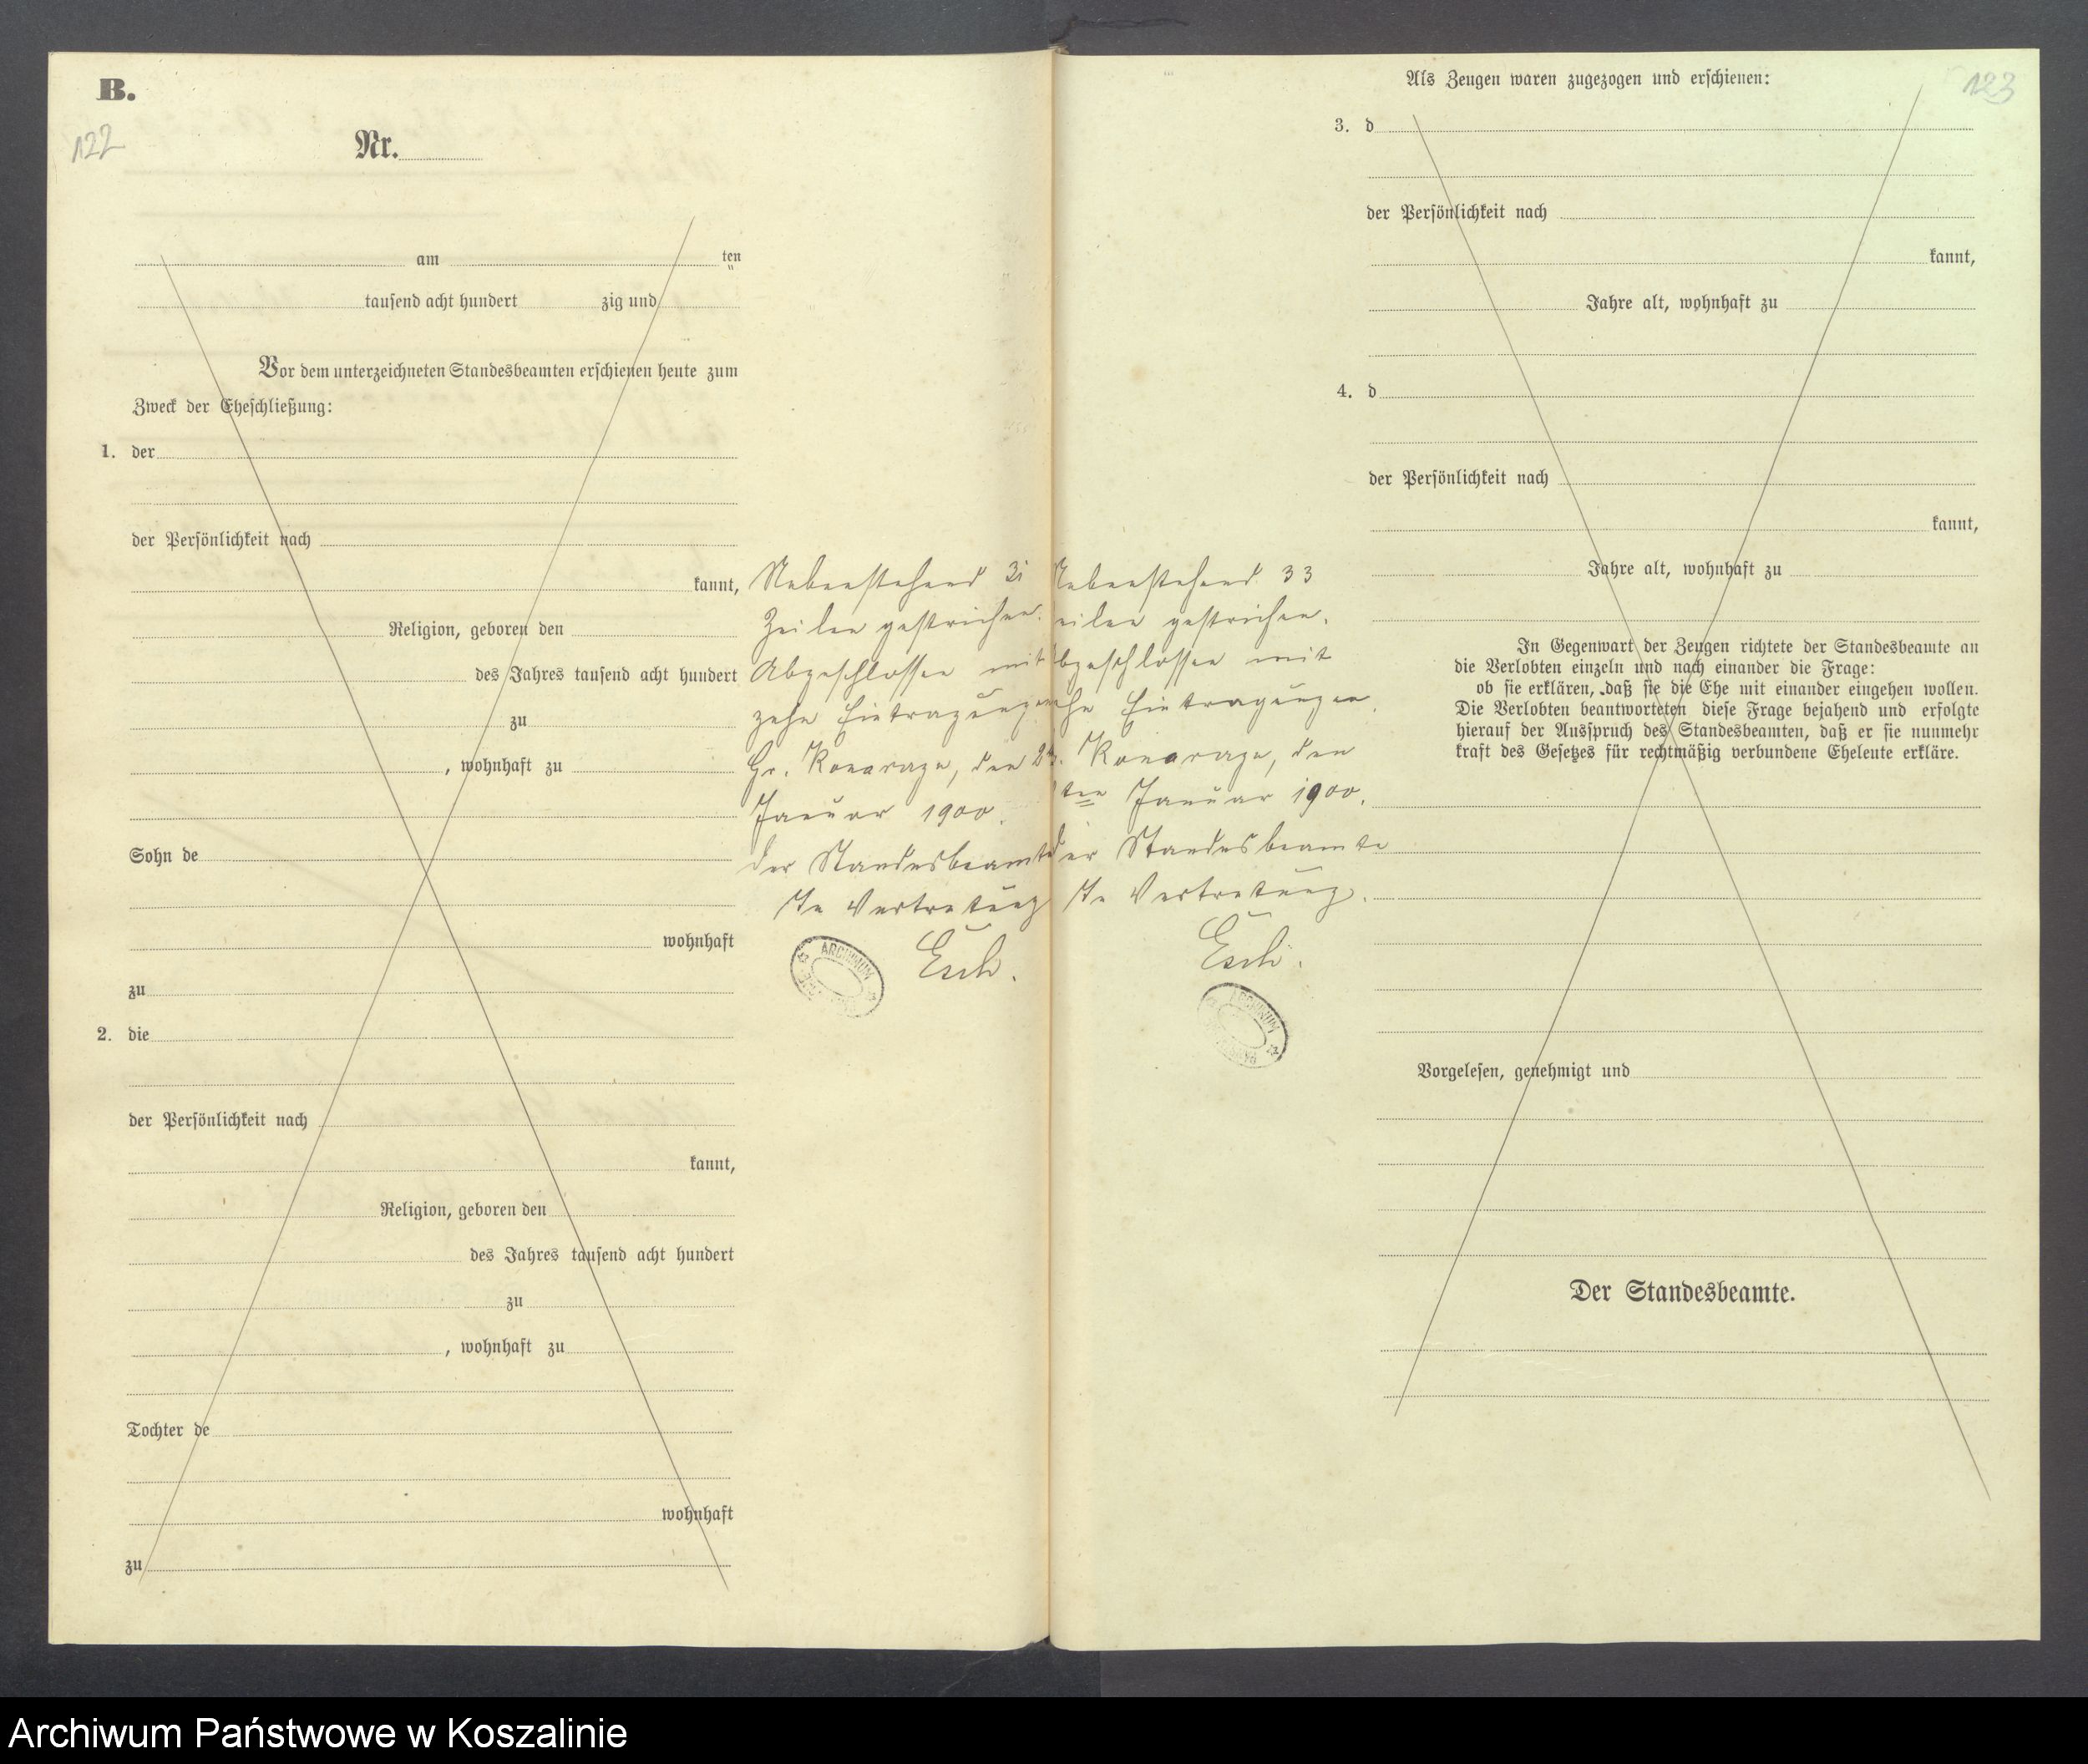 B.
122
Nr.
am ten
tausend acht hundert zig und
Vor dem unterzeichneten Standesbeamten erschienen heute zum
Zweck der Eheschließung:
1. der
der Persönlichkeit nach
kannt,
Religion, geboren den
des Jahres tausend acht hundert
zu
, wohnhaft zu
Sohn de
wohnhaft
zu
2. die
der Persönlichkeit nach
kannt,
Religion, geboren den
des Jahres tausend acht hundert
zu
, wohnhaft zu
Tochter de
wohnhaft
zu
Nebenstehend
Zeilen gestrichen.
Abgeschlossen mit
zehn Eintragungen
Gr. den
Januar 1900.
Der Standesbeamte
In Vertretung
Esch.
ARCHIWUM
123
Als Zeugen waren zugezogen und erschienen:
3. d
der Persönlichkeit nach
kannt,
Jahre alt, wohnhaft zu
4. d
der Persönlichkeit nach
kannt,
Jahre alt, wohnhaft zu
In Gegenwart der Zeugen richtete der Standesbeamte an
die Verlobten einzeln und nach einander die Frage:
ob sie erklären, daß sie die Ehe mit einander eingehen wollen.
Die Verlobten beantworteten diese Frage bejahend und erfolgte
hierauf der Ausspruch des Standesbeamten, daß er sie nunmehr
kraft des Gesetzes für rechtmäßig verbundene Eheleute erkläre.
Vorgelesen, genehmigt und
Der Standesbeamte.
Nebenstehend 33
Zeilen gestrichen.
Abgeschlossen mit
zehn Eintragungen.
den
ten Januar 1900.
Der Standesbeamte
In Vertretung.
Esch.
ARCHIWUM
Archiwum Państwowe w Koszalinie